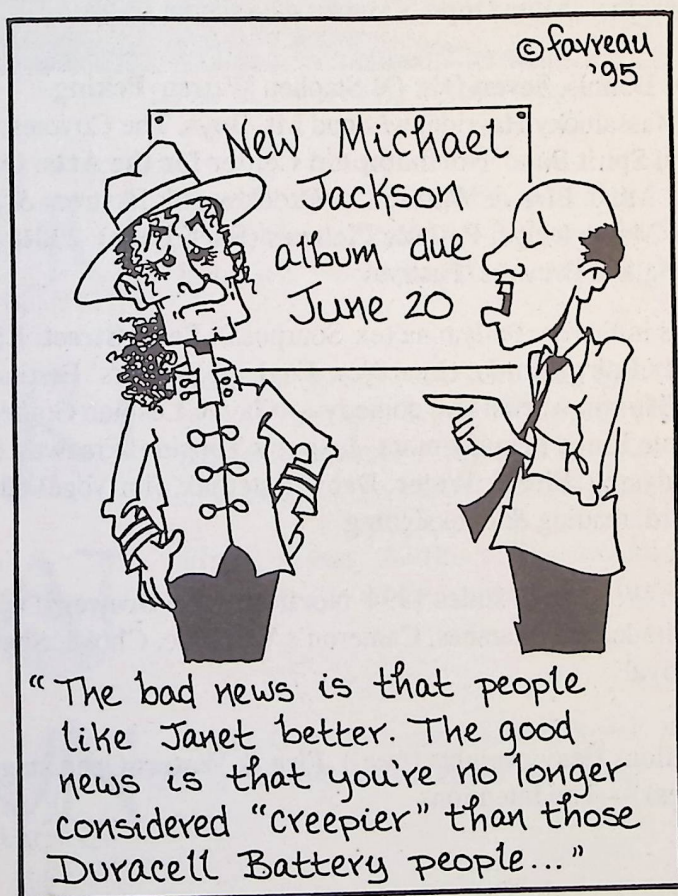 © favreau
'95
New Michael
Jackson
album due
June 20
"The bad news is that people
like Janet better. The good
news is that you're no longer
considered "creepier" than those
Duracell Battery people..."